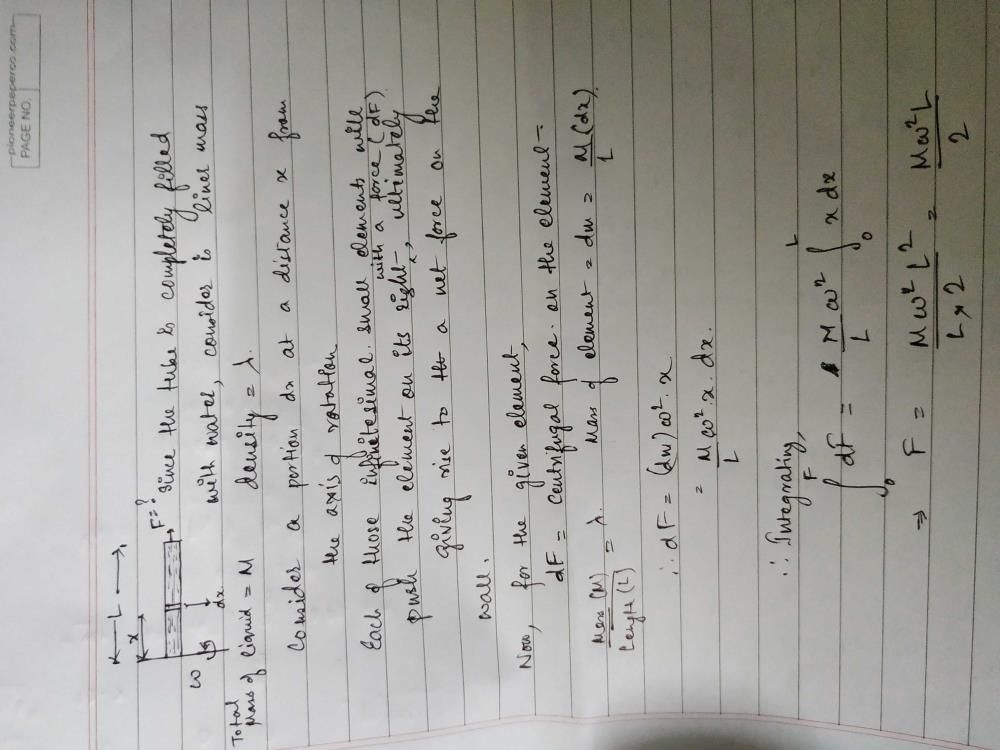 pioneerpaperco.com
PAGE NO.
← L →
x
F=?
ω
dx
Since the tube is completely filled
with water, consider its liner mass
Total mass of liquid = M density = λ.
Consider a portion dx at a distance x from
the axis of rotation
Each of those infinitesimal small elements will
push the element on its right with a force (dF), ultimately
giving rise to a net force on the
wall.
Now, for the given element,
dF = centrifugal force on the element –
Mass (M) / Length (L) = λ. Mass of element = dm = M/L (dx).
∴ dF = (dm) ω². x
= M/L ω². x. dx.
∴ Integrating,
∫₀ᶠ dF = M/L ω² ∫₀ᴸ x dx
⇒ F = Mω²L² / L×2 = Mω²L / 2